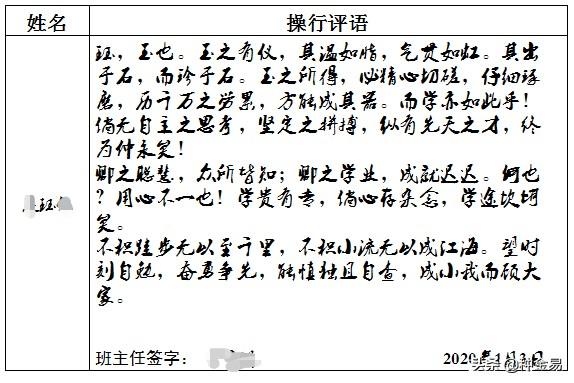 姓名 操行评语
珏，玉也。玉之有仪，其温如脂，气贯如虹。其出
于石，而珍于石。玉之所得，必精心切磋，仔细琢
磨，历千万之劳累，方能成其器。而学亦如此乎！
倘无自主之思考，坚定之拼搏，纵有先天之才，终
为仲永矣！
卿之聪慧，众所皆知；卿之学业，成就迟迟。何也
？用心不一也！学贵有专，倘心存杂念，学途坎坷
矣。
不积跬步无以至千里，不积小流无以成江海。望时
刻自勉，奋勇争先，能慎独且自查，成小我而顾大
家。
班主任签字： 2020年1月3日
头条@种金易